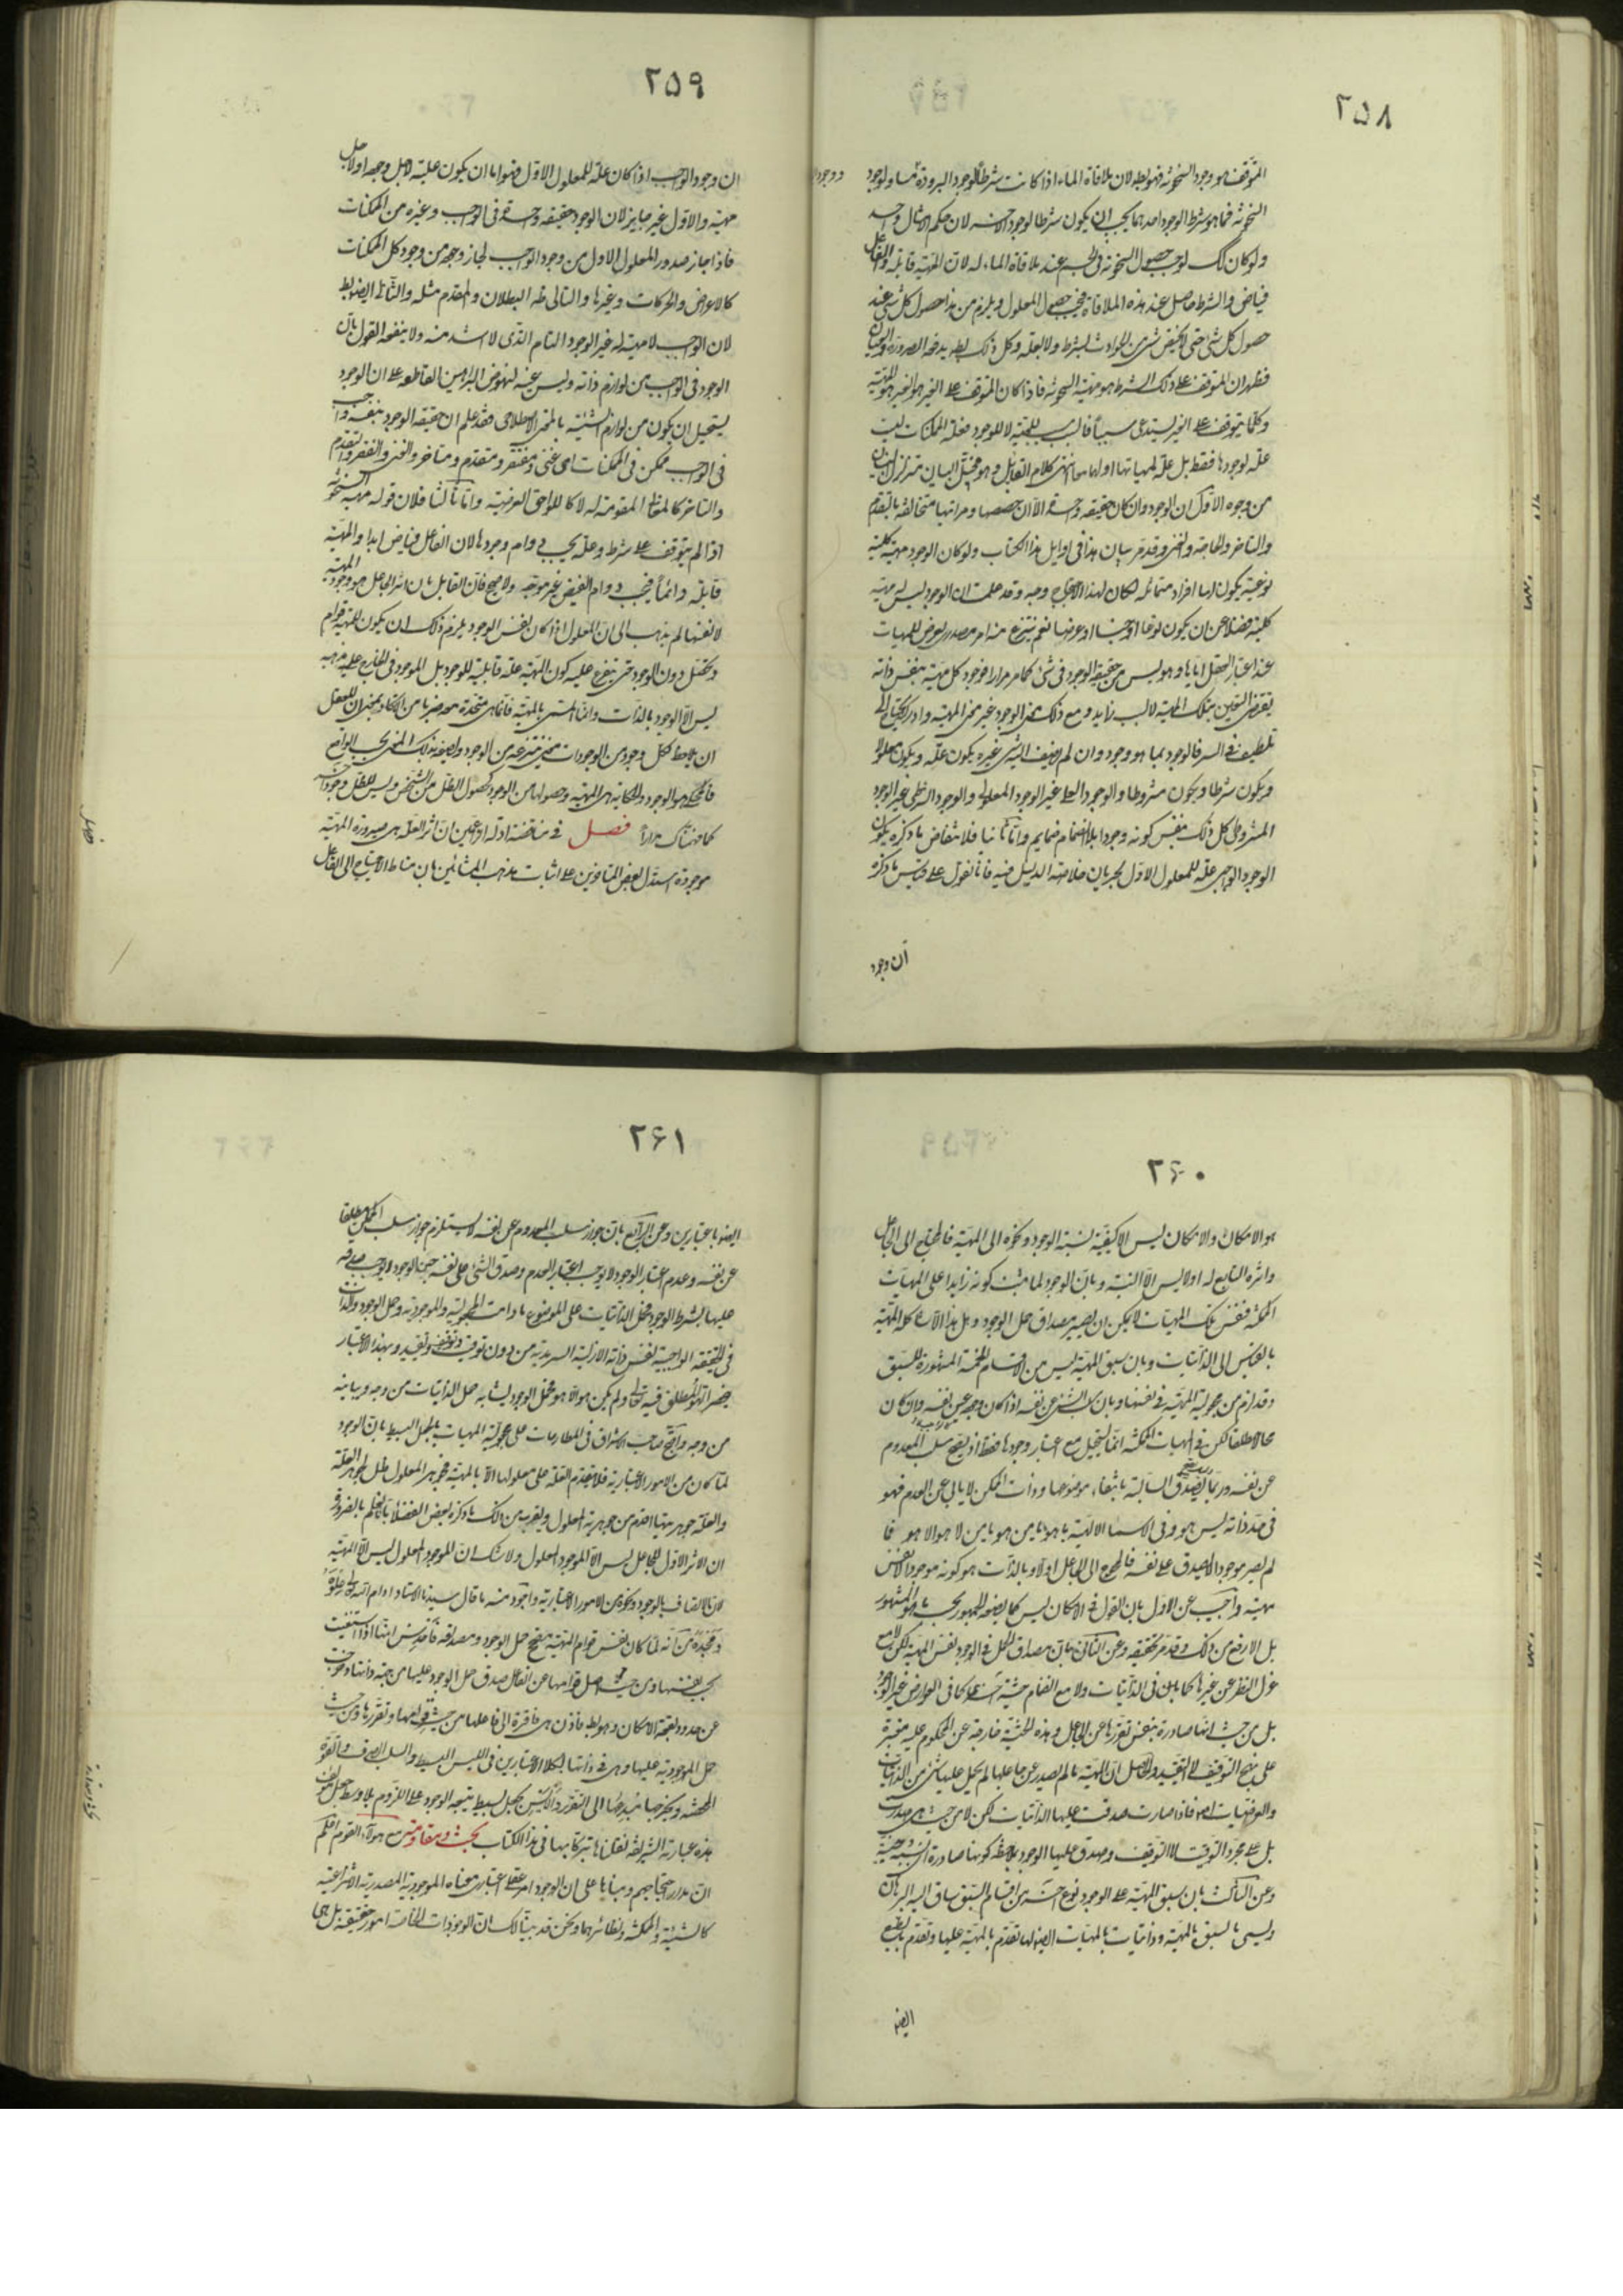 ٢٥٨
المتوقف هو وجود السخونة فهو بط لان ملاقاة الماء اذا كانت شرطا لوجود البرودة مثلا ولوجود
السخونة فما هو شرط لوجود احدهما يجب ان يكون شرطا لوجود الاخر لان حكم الامثال واحد
ولو كان كك لوجب حصول السخونة فى الجسم عند ملاقاة الماء له لان المهية قابلة والفاعل
فياض والشرط حاصل عند هذه الملاقاة فيجب حصول المعلول ويلزم من هذا حصول كل شى عند
حصول كل شى حتى لا يختص شى من الحوادث بشرط ولا بعلة وكل ذلك بط يدفعه الضرورة والعيان
فظهر ان المتوقف على ذلك الشرط هو مهية السخونة فاذا كان المتوقف على الغير هو المهية
وكلما يتوقف على الغير يستدعى سببا فالسبب للمهية لا للوجود فعلة الممكنات ليست
علة لوجودها فقط بل علة لمهياتها او لهما معا انتهى كلام القائل وهو مختل البيان متزلزل البنيان
من وجوه الاول ان الوجود وان كان حقيقة واحدة الا ان حصصها ومراتبها متخالفة بالتقدم
والتاخر والحاجة والغنى وقد مر بيان هذا فى اوايل هذا الكتاب ولو كان الوجود مهية كلية
نوعية يكون لها افراد متماثلة لكان لهذا الاحتجاج وجه وقد علمت ان الوجود ليس له مهية
كلية فضلا عن ان يكون نوعا او جنسا او عرضا نعم ينتزع منه امر مصدرى يعرض للمهيات
عند اعتبار العقل اياها وهو ليس من حقيقة الوجود فى شى كما مر مرارا فوجود كل مهية بنفس ذاته
يقتضى التعين بتلك المهية لا بسبب زايد ومع ذلك معنى الوجود غير معنى المهية وادراكه يحتاج الى
تلطيف فى السر فالوجود بما هو وجود وان لم يضف اليه شى غيره يكون علة ويكون معلولا
ويكون شرطا ويكون مشروطا والوجود العلى غير الوجود المعلولى والوجود الشرطى غير الوجود
المشروطى كل ذلك بنفس كونه وجودا بلا انضمام ضمايم واما ثانيا فلانتقاض ما ذكره بكون
الوجود الواجبى علة للمعلول الاول لجريان خلاصة الدليل فيه فانا نقول على قياس ما ذكره
ان وجود
٢٥٩
ان وجود الواجب اذا كان علة للمعلول الاول فهو اما ان يكون علية لاجل وجوده او لاجل
مهية والاول غير جايز لان الوجود حقيقة واحدة فى الواجب وغيره من الممكنات
فاذا جاز صدور المعلول الاول من وجود الواجب لجاز وجه من وجود كل الممكنات
كالاعراض والحركات وغيرها والتالى ظ البطلان والمقدم مثله والثانى ايضا بط
لان الواجب لا مهية له غير الوجود التام الذى لا اشد منه ولا ينفعه القول بان
الوجود فى الواجب من لوازم ذاته وليس عينه لنهوض البراهين القاطعة على ان الوجود
يستحيل ان يكون من لوازم الشئ بالمعنى الاصطلاحى فقد علم ان حقيقة الوجود بنفسه واجب
فى الواجب ممكن فى الممكنات اى غنى ومفتقر ومتقدم ومتاخر والغنى والفقر والتقدم
والتاخر كالمعانى المقومة له لا كاللواحق العرضية واما ثالثا فلان قوله مهية السخونة
اذا لم يتوقف على شرط وعلة يجب دوام وجودها لان الفاعل فياض ابدا والمهية
قابلة دائما فيجب دوام الفيض غير موجه ولا صحيح فان القائل بان اثر الجاعل هو وجود المهية
لا نفسها لم يذهب الى ان المعلول اذا كان نفس الوجود يلزم ذلك ان يكون للمهية قوام
وتحصل دون الوجود حتى يتفرع عليه كون المهية علة قابلية للوجود بل الموجود فى الخارج على مذهبه
ليس الا الوجود بالذات واما المسمى بالمهية فانما هى متحدة معه ضربا من الاتحاد بمعنى ان للعقل
ان يلاحظ لكل وجود من الوجودات معنى منتزعا من الوجود ويصفه بذلك المعنى بحسب الواقع
فالمحكى هو الوجود والحكاية هى المهية وحصولها من الوجود كحصول الظل من الشخص وليس للظل وجود آخر
كما فهناك مرارا فصل فى مناقضة ادلة الزاعمين ان اثر العلة هى صيرورة المهية
موجودة استدل بعض المتاخرين على اثبات مذهب المشائين بان مناط الاحتياج الى الفاعل
٢٦٠
هو الامكان والامكان ليس الا كيفية نسبة الوجود ونحوه الى المهية فالمحتاج الى الجاعل
واثره التابع له اولا ليس الا النسبة وبان الوجود لما ثبت كونه زايدا على المهيات
الممكنة فنفس تلك المهيات لا يمكن ان يصير مصداق حمل الوجود وهل هذا الا شاكلة المهية
بالقياس الى الذاتيات وبان سبق المهية ليس من الاقسام الخمسة المشهورة للسبق
وقد لزم من مجعولية المهية فى نفسها وبان سلب الشئ عن نفسه اذا كان وجوده عين نفسه وان كان
محالا مطلقا لكن فى المهيات الممكنة انما يستحيل مع اعتبار وجودها فقط اذ يصح سلب المعدوم
عن نفسه وربما يصدق السالبة بانتفاء موضوعها وذات الممكن لا يابى عن العدم فهو
فى حد ذاته ليس هو وفى الاسماء الالهية يا هو يا من هو يا من لا هو الا هو فما
لم يصر موجودا لم يصدق على نفسه فالمحوج الى الجاعل اولا وبالذات هو كونه موجودا لا نفس
مهية واجيب عن الاول بان القول فى الامكان ليس كما يضعه الجمهور بحسب ما هو المشهور
بل الارفع من ذلك وقد مر تحقيقه وعن الثانى بان مصداق الحمل فى الوجود نفس المهية لكن لا مع
عزل النظر عن غيرها كما يكون فى الذاتيات ولا مع انضمام حيثية اخرى كما فى العوارض غير الوجود
بل من حيث انها صادرة بنفس تقررها عن الجاعل وهذه الحيثية خارجة عن المحكوم عليه معتبرة
على نهج التوقيت لا التقييد والحاصل ان المهية ما لم يصدر عن جاعلها لم يحمل عليها شى من الذاتيات
والعرضيات اصلا فاذا صارت صدقت عليها الذاتيات لكن لا من حيث هى صدرت
بل على مجرد التوقيت لا التوقيف وصدق عليها الوجود بملاحظة كونها صادرة
وعن الثالث بان سبق المهية على الوجود نوع اخر من اقسام السبق ساق اليه البرهان
وليسمى بالسبق بالمهية وذاتيات المهيات ايضا لها تقدم بالمهية عليها وتقدم بالطبع
ايضا
٢٦١
ايضا باعتبارين وعن الرابع بان جواز سلب المعدوم عن نفسه لا يستلزم جواز سلب الممكن مطلقا
عن نفسه وعدم اعتبار الوجود لا يوجب اعتبار العدم وصدق الشئ على نفسه حين الوجود لا يوجب صدقه
عليها بشرط الوجود فحمل الذاتيات على الموضوع ما دامت المجعولية والموجودية وحمل الوجود والذات
فى الحقيقة الواجبية نفس ذاته الازلية السرمدية من دون توقيت وتوقيف وتقييد وبهذا الاعتبار
حضر الهو المطلق فيه تعالى ولم يكن هو الا هو فحمل الوجود يشابه حمل الذاتيات من وجه ويباينه
من وجه واحتج صاحب الاشراق فى المطارحات على مجعولية المهيات بالجعل البسيط بان الوجود
لما كان من الامور الاعتبارية فلا يتقدم العلة على معلولها الا بالمهية فجوهر المعلول ظل لجوهر العلة
والعلة جوهريتها اقدم من جوهرية المعلول ويقرب من ذلك ما ذكره بعض الفضلاء بانا نعلم بالضرورة
ان الاثر الاول للجاعل ليس الا الموجود المعلول ولا شك ان الموجود المعلول ليس الا المهية
لان الاتصاف بالوجود ونحوه من الامور الاعتبارية واجود منه ما قال سيدنا الاستاد ادام الله تعالى علوه
ومجده من انه لما كان نفس قوام المهية مصحح حمل الوجود ومصداقه فاحدس انها اذا استغنت
بحسب نفسها ومن حيث اصل قوامها عن الفاعل صدق حمل الوجود عليها من جهة ذاتها وخرجت
عن حدود بقعة الامكان وهو بط فاذن هى فاقرة الى فاعلها من حيث قوامها وتقررها ومن حيث
حمل الموجودية عليها وهى فى ذاتها بكلا الاعتبارين فى الليس البسيط والسلب الصرف والقوة
المحضة ويخرجها مبدعها الى التقرر والايس بجعل بسيط يتبعه الوجود على اللزوم بلا وسط جعل مؤلف
هذه عبارته الشريفة نقلناها تبركا بها فى هذا الكتاب بحث ومقاومة مع هؤلاء القوم اعلم
ان مدار احتجاجهم ومبناها على ان الوجود امر عقلى اعتبارى معناه الموجودية المصدرية الانتزاعية
كالشيئية والممكنية ونظائرهما ونحن قد بينا لك ان الوجودات الخاصة امور حقيقية بل هى